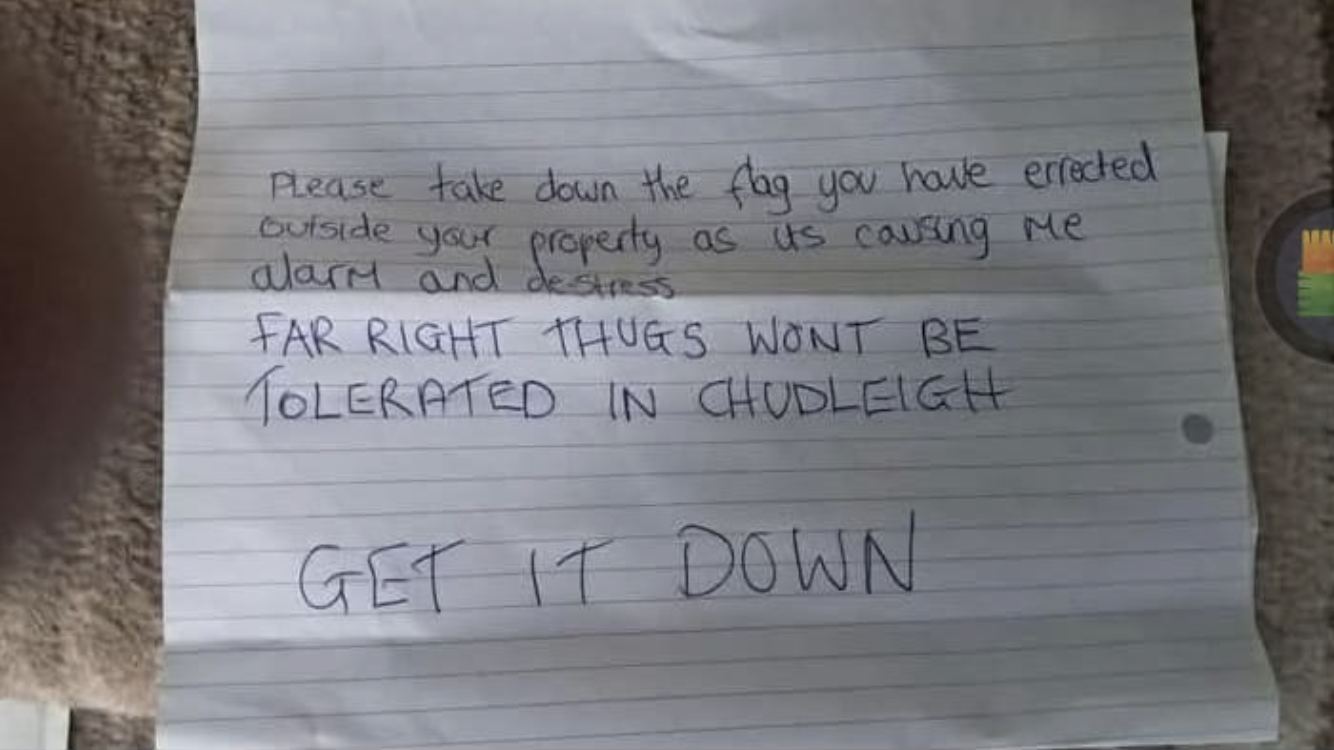 Please take down the flag you have errected
outside your property as its causing me
alarm and destress
FAR RIGHT THUGS WONT BE
TOLERATED IN CHUDLEIGH
GET IT DOWN